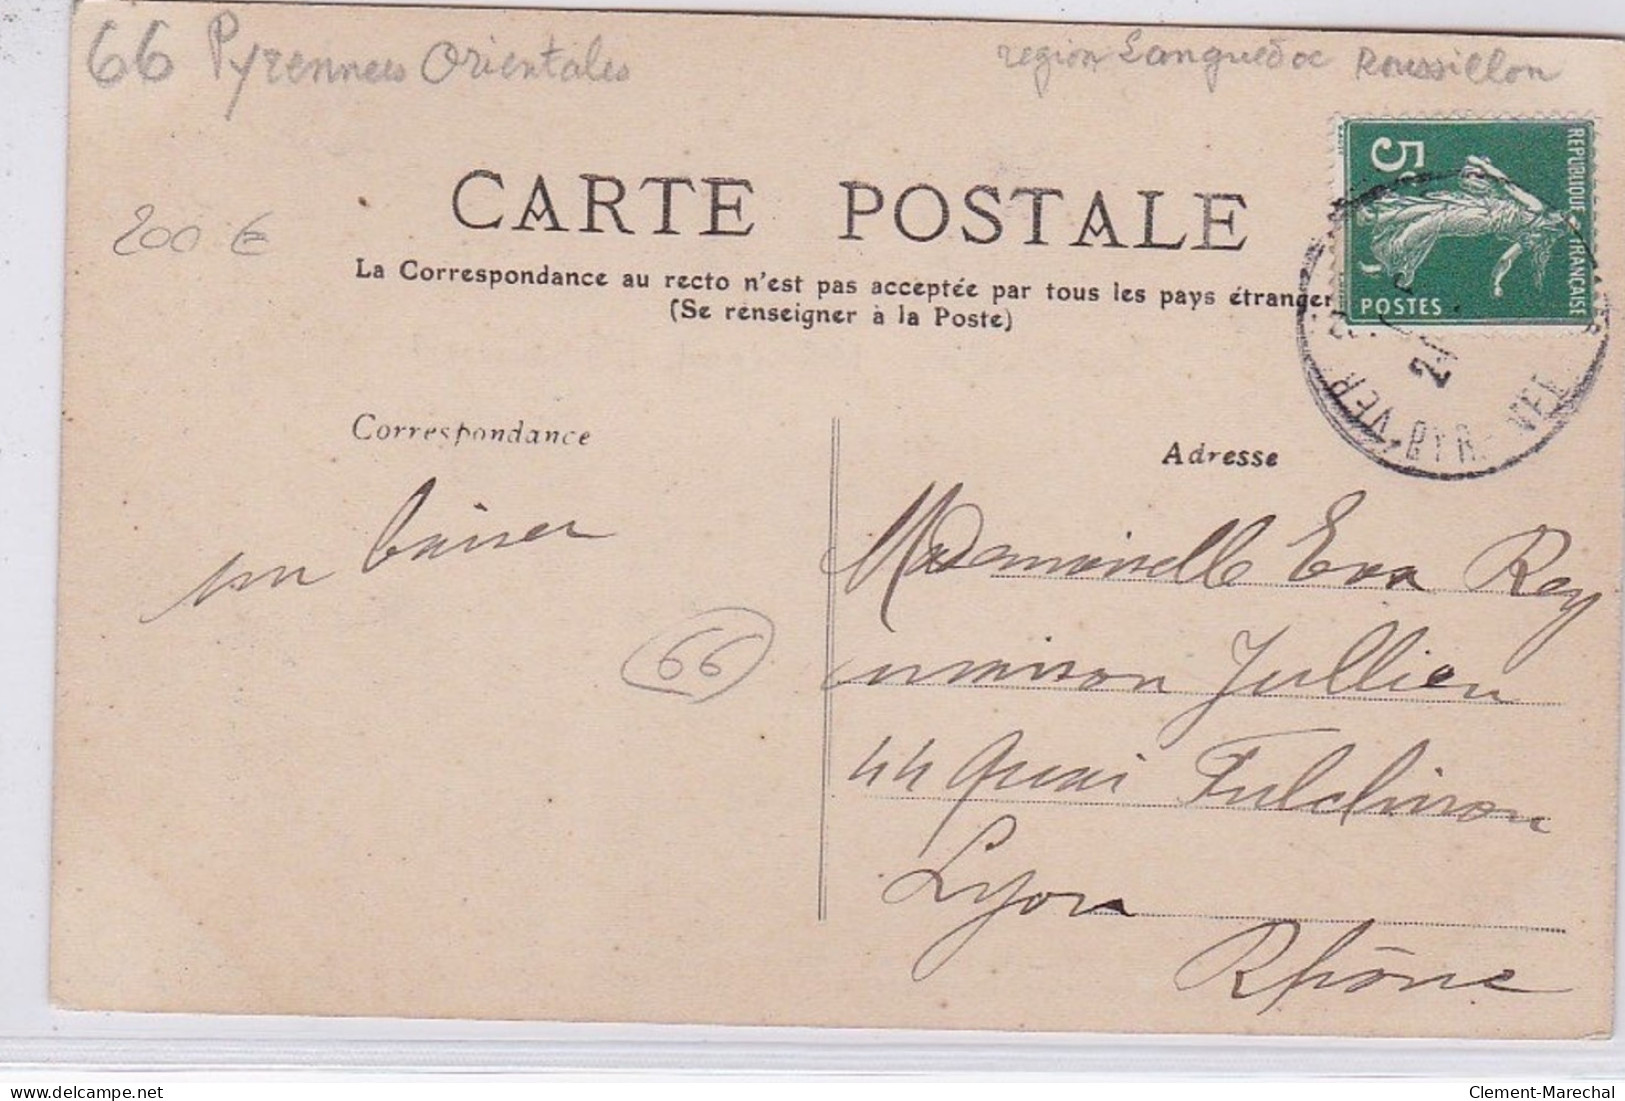 66 Pyrennees Orientales
region Languedoc Roussillon
200 €
CARTE POSTALE
La Correspondance au recto n'est pas acceptée par tous les pays étranger
(Se renseigner à la Poste)
5c
REPUBLIQUE FRANÇAISE
POSTES
Correspondance
un baiser
66
Adresse
Mademoiselle Eva Rey
maison Jullien
44 Quai Fulchiron
Lyon
Rhône
delcampe.net
Clement-Marechal